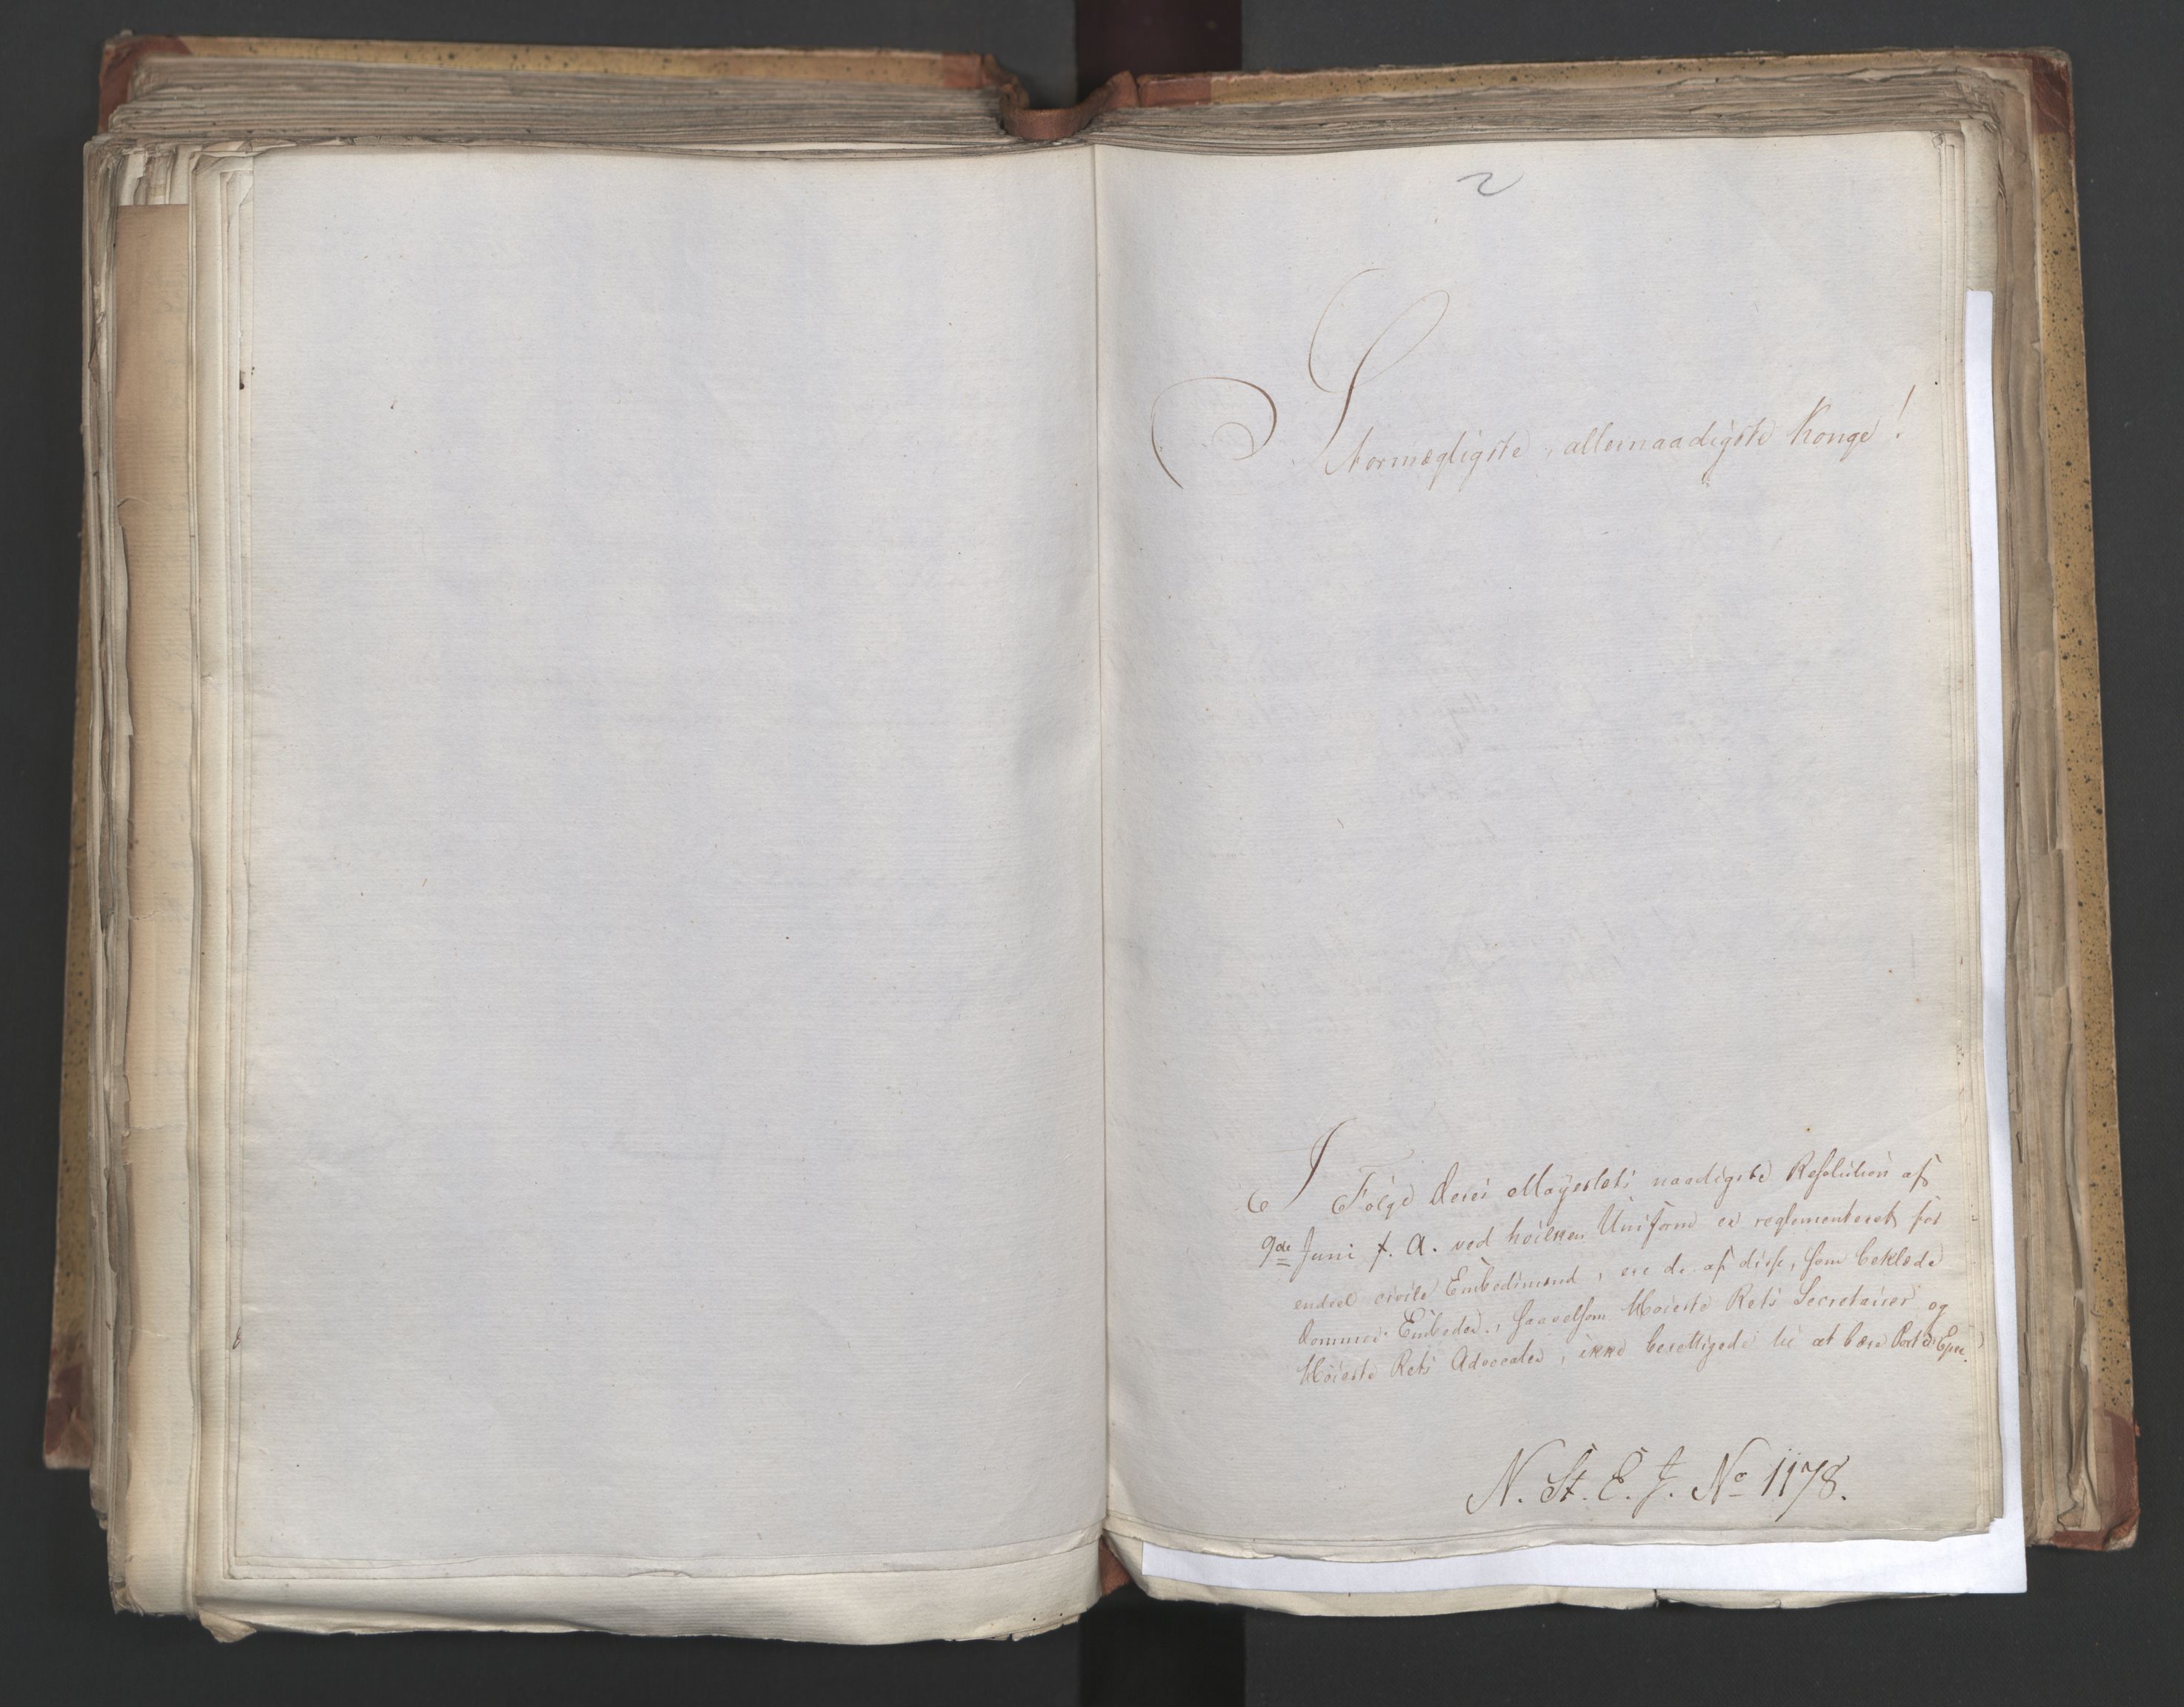 2
Stormægtigste, allernaadigste Konge!
I Følge Deres Mayestets naadigste Resolution af
9de Juni f. A. ved hvilken Uniform er reglementeret for
endeel civile Embedsmænd, ere de af disse, som beklæde
Dommer Embeder, saavelsom Høieste Rets Secretairer og
Høieste Rets Advocater, ikke berettigede til at bære Port d'Epee.
N. St. E. J. No 1178.